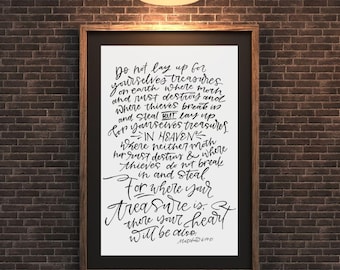 Do not lay up for
yourselves treasures
on earth where moth
and rust destroy and
where thieves break in
and steal BUT lay up
for yourselves treasures
IN HEAVEN
where neither moth
nor rust destroy & where
thieves do not break
in and steal
For where your
treasure is,
there your heart
will be also.
Matthew